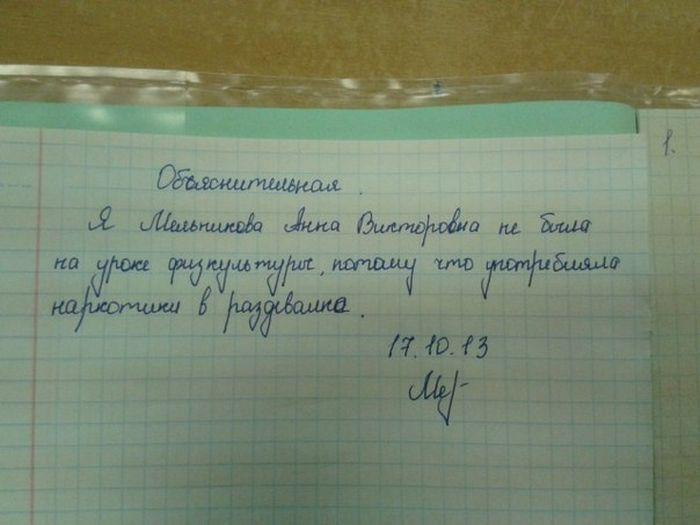 Объяснительная.
Я Мельникова Анна Викторовна не была
на уроке физкультуры, потому что употребляла
наркотики в раздевалке.
17.10.13
1.